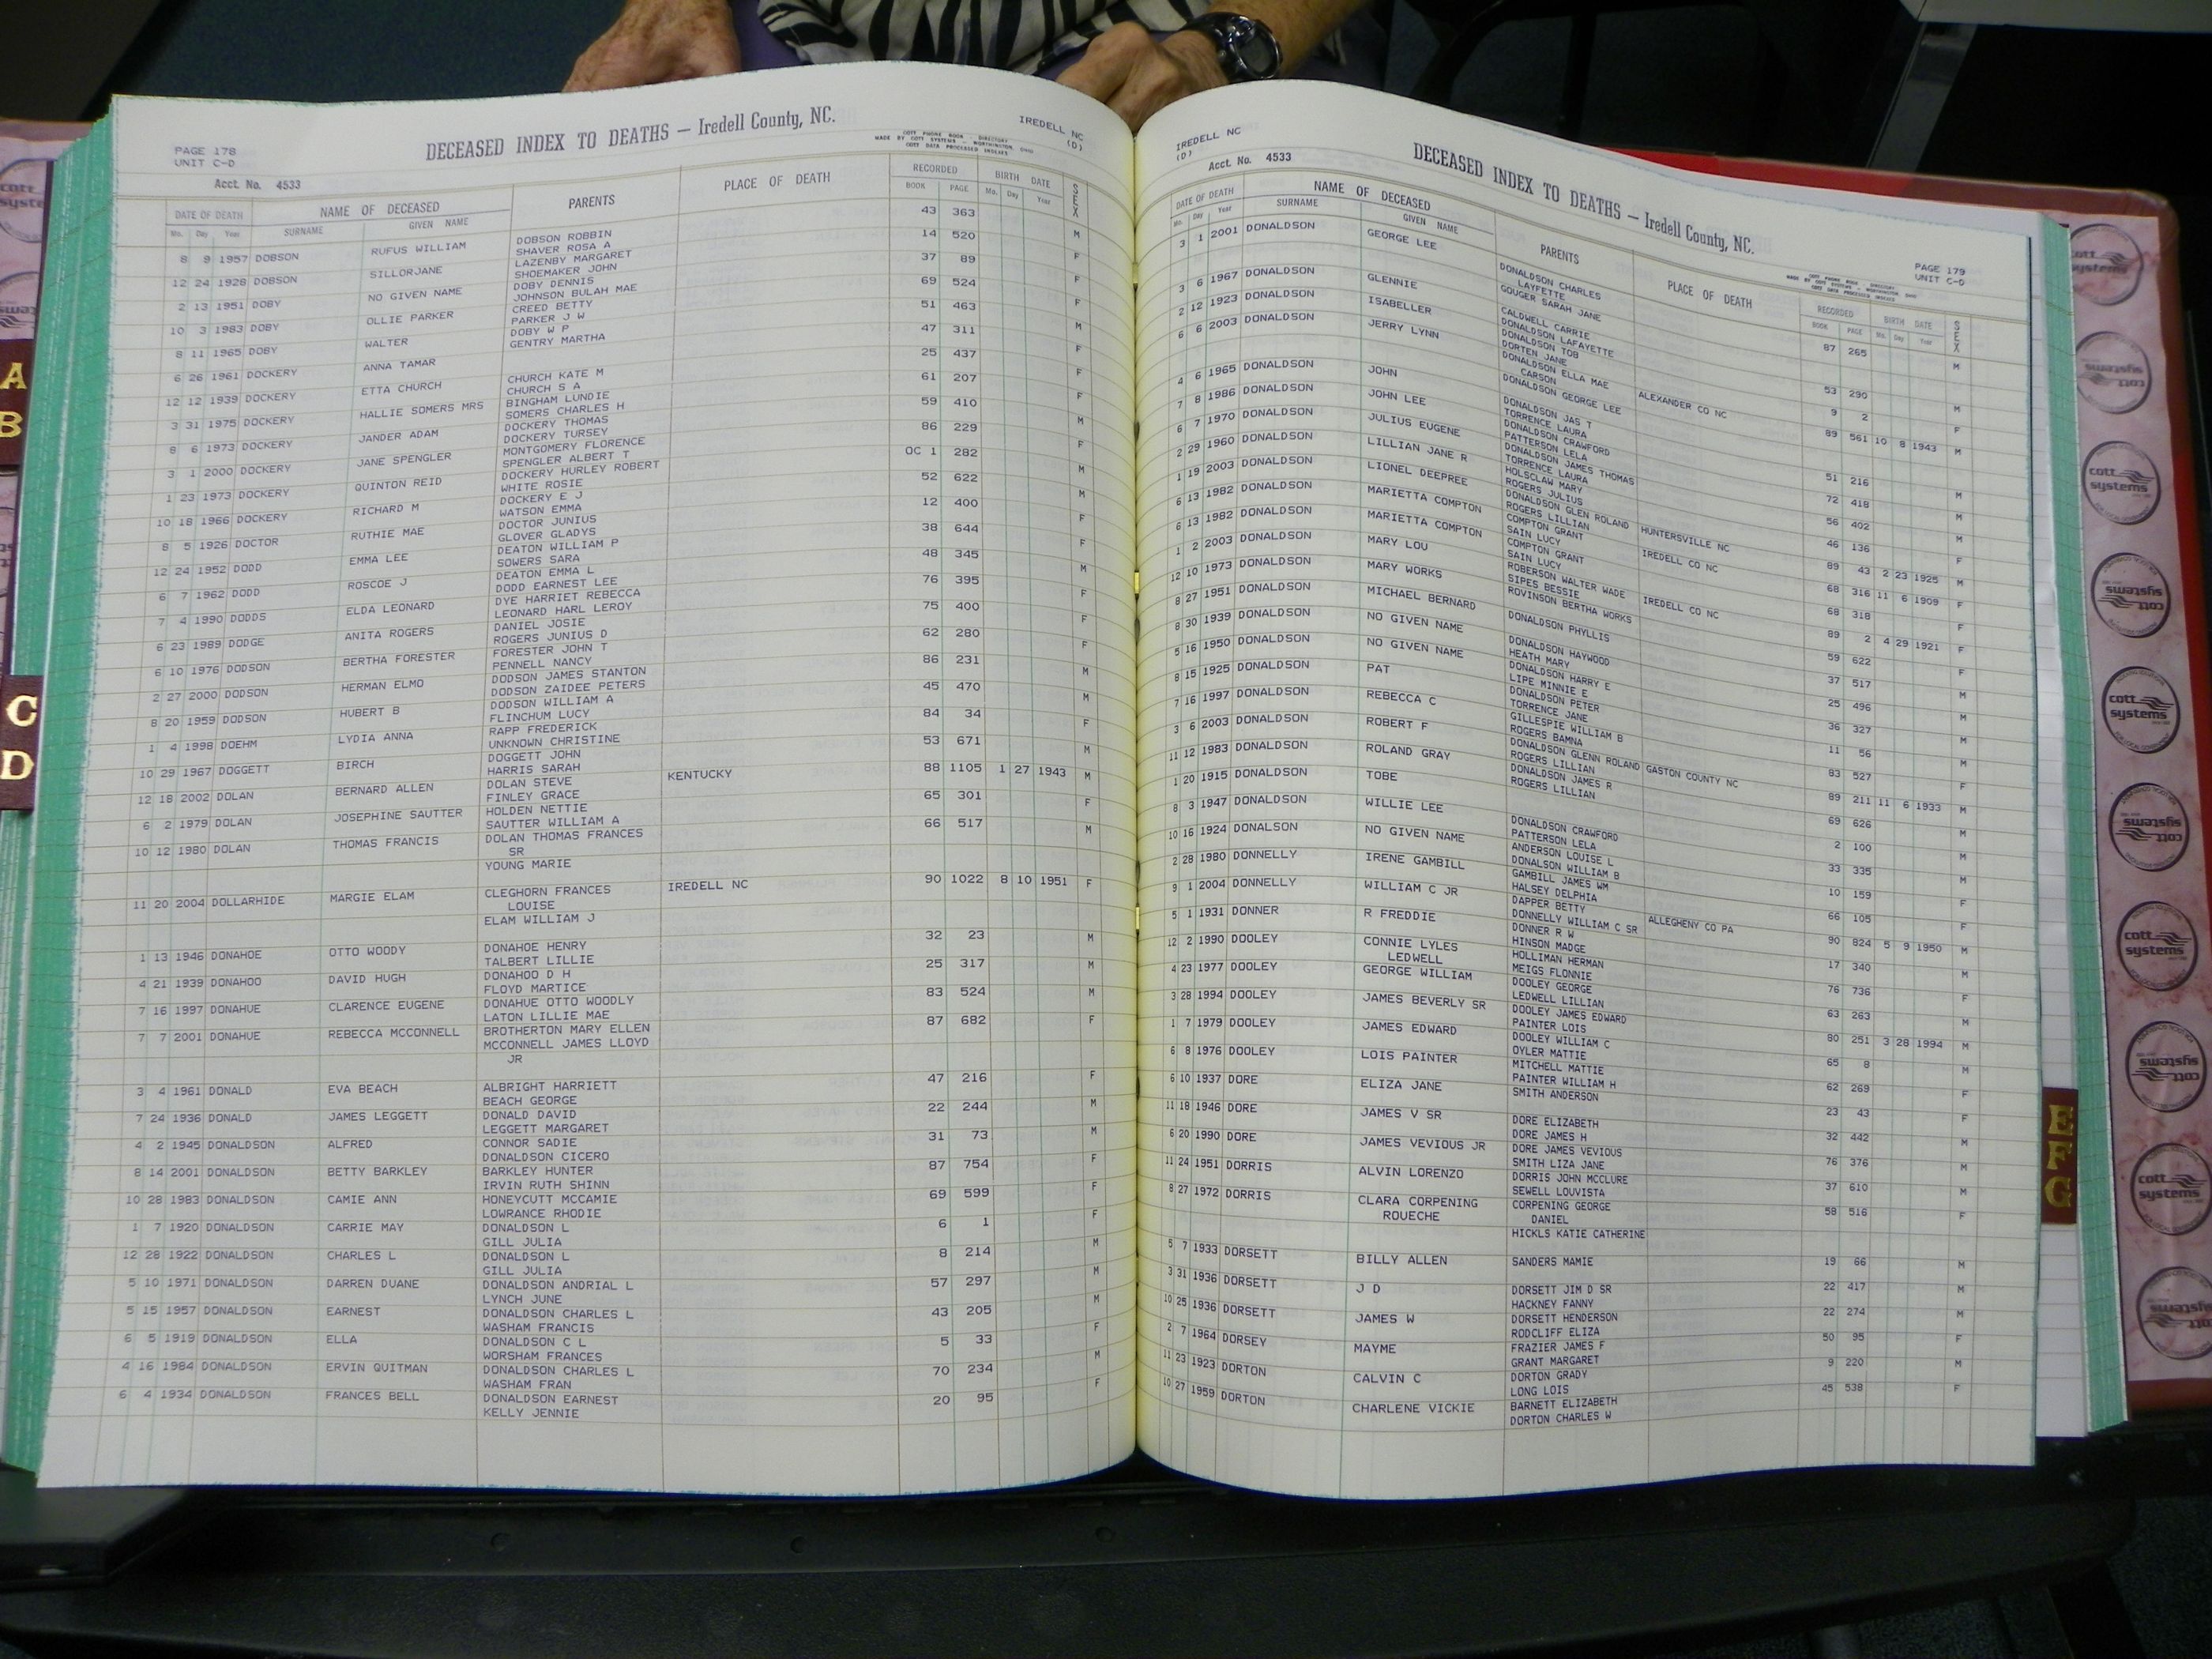 PAGE 178
UNIT C-D
DECEASED INDEX TO DEATHS — Iredell County, NC.
COTT PHONE BOOK - DIRECTORY
MADE BY COTT SYSTEMS - WORTHINGTON, OHIO
COTT DATA PROCESSED INDEXES
IREDELL NC
(D)
Acct. No. 4533
DATE OF DEATH NAME OF DECEASED PARENTS PLACE OF DEATH RECORDED BIRTH DATE SEX
Mo. Day Year SURNAME GIVEN NAME BOOK PAGE Mo. Day Year
8 9 1957 DOBSON RUFUS WILLIAM DOBSON ROBBIN 43 363 M
SHAVER ROSA A
12 24 1928 DOBSON SILLORJANE LAZENBY MARGARET 14 520 F
SHOEMAKER JOHN
2 13 1951 DOBY NO GIVEN NAME DOBY DENNIS 37 89 F
JOHNSON BULAH MAE
10 3 1983 DOBY OLLIE PARKER CREED BETTY 69 524 F
PARKER J W
8 11 1965 DOBY WALTER DOBY W P 51 463 M
GENTRY MARTHA
6 26 1961 DOCKERY ANNA TAMAR 47 311 F
12 12 1939 DOCKERY ETTA CHURCH CHURCH KATE M 25 437 F
CHURCH S A
3 31 1975 DOCKERY HALLIE SOMERS MRS BINGHAM LUNDIE 61 207 F
SOMERS CHARLES H
8 6 1973 DOCKERY JANDER ADAM DOCKERY THOMAS 59 410 M
DOCKERY TURSEY
3 1 2000 DOCKERY JANE SPENGLER MONTGOMERY FLORENCE 86 229 F
SPENGLER ALBERT T
1 23 1973 DOCKERY QUINTON REID DOCKERY HURLEY ROBERT OC 1 282 M
WHITE ROSIE
10 18 1966 DOCKERY RICHARD M DOCKERY E J 52 622 M
WATSON EMMA
8 5 1926 DOCTOR RUTHIE MAE DOCTOR JUNIUS 12 400 F
GLOVER GLADYS
12 24 1952 DODD EMMA LEE DEATON WILLIAM P 38 644 F
SOWERS SARA
6 7 1962 DODD ROSCOE J DEATON EMMA L 48 345 M
DODD EARNEST LEE
7 4 1990 DODDS ELDA LEONARD DYE HARRIET REBECCA 76 395 F
LEONARD HARL LEROY
6 23 1989 DODGE ANITA ROGERS DANIEL JOSIE 75 400 F
ROGERS JUNIUS D
6 10 1976 DODSON BERTHA FORESTER FORESTER JOHN T 62 280 F
PENNELL NANCY
2 27 2000 DODSON HERMAN ELMO DODSON JAMES STANTON 86 231 M
DODSON ZAIDEE PETERS
8 20 1959 DODSON HUBERT B DODSON WILLIAM A 45 470 M
FLINCHUM LUCY
1 4 1998 DOEHM LYDIA ANNA RAPP FREDERICK 84 34 F
UNKNOWN CHRISTINE
10 29 1967 DOGGETT BIRCH DOGGETT JOHN 53 671 M
HARRIS SARAH
12 18 2002 DOLAN BERNARD ALLEN DOLAN STEVE KENTUCKY 88 1105 1 27 1943 M
FINLEY GRACE
6 2 1979 DOLAN JOSEPHINE SAUTTER HOLDEN NETTIE 65 301 F
SAUTTER WILLIAM A
10 12 1980 DOLAN THOMAS FRANCIS DOLAN THOMAS FRANCES 66 517 M
SR
YOUNG MARIE
11 20 2004 DOLLARHIDE MARGIE ELAM CLEGHORN FRANCES IREDELL NC 90 1022 8 10 1951 F
LOUISE
ELAM WILLIAM J
1 13 1946 DONAHOE OTTO WOODY DONAHOE HENRY 32 23 M
TALBERT LILLIE
4 21 1939 DONAHOO DAVID HUGH DONAHOO D H 25 317 M
FLOYD MARTICE
7 16 1997 DONAHUE CLARENCE EUGENE DONAHUE OTTO WOODLY 83 524 M
LATON LILLIE MAE
7 7 2001 DONAHUE REBECCA MCCONNELL BROTHERTON MARY ELLEN 87 682 F
MCCONNELL JAMES LLOYD
JR
3 4 1961 DONALD EVA BEACH ALBRIGHT HARRIETT 47 216 F
BEACH GEORGE
7 24 1936 DONALD JAMES LEGGETT DONALD DAVID 22 244 M
LEGGETT MARGARET
4 2 1945 DONALDSON ALFRED CONNOR SADIE 31 73 M
DONALDSON CICERO
8 14 2001 DONALDSON BETTY BARKLEY BARKLEY HUNTER 87 754 F
IRVIN RUTH SHINN
10 28 1983 DONALDSON CAMIE ANN HONEYCUTT MCCAMIE 69 599 F
LOWRANCE RHODIE
1 7 1920 DONALDSON CARRIE MAY DONALDSON L 6 1 F
GILL JULIA
12 28 1922 DONALDSON CHARLES L DONALDSON L 8 214 M
GILL JULIA
5 10 1971 DONALDSON DARREN DUANE DONALDSON ANDRIAL L 57 297 M
LYNCH JUNE
5 15 1957 DONALDSON EARNEST DONALDSON CHARLES L 43 205 M
WASHAM FRANCIS
6 5 1919 DONALDSON ELLA DONALDSON C L 5 33 F
WORSHAM FRANCES
4 16 1984 DONALDSON ERVIN QUITMAN DONALDSON CHARLES L 70 234 M
WASHAM FRAN
6 4 1934 DONALDSON FRANCES BELL DONALDSON EARNEST 20 95 F
KELLY JENNIE
IREDELL NC
(D)
Acct. No. 4533
DECEASED INDEX TO DEATHS — Iredell County, NC.
COTT PHONE BOOK - DIRECTORY
MADE BY COTT SYSTEMS - WORTHINGTON, OHIO
COTT DATA PROCESSED INDEXES
PAGE 179
UNIT C-D
DATE OF DEATH NAME OF DECEASED PARENTS PLACE OF DEATH RECORDED BIRTH DATE SEX
Mo. Day Year SURNAME GIVEN NAME BOOK PAGE Mo. Day Year
3 1 2001 DONALDSON GEORGE LEE DONALDSON CHARLES 87 265 M
LAYFETTE
GOUGER SARAH JANE
3 6 1967 DONALDSON GLENNIE CALDWELL CARRIE 53 290 M
DONALDSON LAFAYETTE
2 12 1923 DONALDSON ISABELLER DONALDSON TOB 9 2 F
DORTEN JANE
6 6 2003 DONALDSON JERRY LYNN DONALDSON ELLA MAE ALEXANDER CO NC 89 561 10 8 1943 M
CARSON
DONALDSON GEORGE LEE
4 6 1965 DONALDSON JOHN DONALDSON JAS T 51 216 M
TORRENCE LAURA
7 8 1986 DONALDSON JOHN LEE DONALDSON CRAWFORD 72 418 M
PATTERSON LELA
6 7 1970 DONALDSON JULIUS EUGENE DONALDSON JAMES THOMAS 56 402 M
TORRENCE LAURA
2 29 1960 DONALDSON LILLIAN JANE R HOLSCLAW MARY 46 136 F
ROGERS JULIUS
1 19 2003 DONALDSON LIONEL DEEPREE DONALDSON GLEN ROLAND HUNTERSVILLE NC 89 43 2 23 1925 M
ROGERS LILLIAN
6 13 1982 DONALDSON MARIETTA COMPTON COMPTON GRANT IREDELL CO NC 68 316 11 6 1909 F
SAIN LUCY
6 13 1982 DONALDSON MARIETTA COMPTON COMPTON GRANT 68 318 F
SAIN LUCY
1 2 2003 DONALDSON MARY LOU ROBERSON WALTER WADE IREDELL CO NC 89 2 4 29 1921 F
SIPES BESSIE
12 10 1973 DONALDSON MARY WORKS ROVINSON BERTHA WORKS 59 622 F
8 27 1951 DONALDSON MICHAEL BERNARD DONALDSON PHYLLIS 37 517 M
8 30 1939 DONALDSON NO GIVEN NAME DONALDSON HAYWOOD 25 496 M
HEATH MARY
5 16 1950 DONALDSON NO GIVEN NAME DONALDSON HARRY E 36 327 M
LIPE MINNIE E
8 15 1925 DONALDSON PAT DONALDSON PETER 11 56 M
TORRENCE JANE
7 16 1997 DONALDSON REBECCA C GILLESPIE WILLIAM B 83 527 F
ROGERS BAMNA
3 6 2003 DONALDSON ROBERT F DONALDSON GLENN ROLAND GASTON COUNTY NC 89 211 11 6 1933 M
ROGERS LILLIAN
11 12 1983 DONALDSON ROLAND GRAY DONALDSON JAMES R 69 626 M
ROGERS LILLIAN
1 20 1915 DONALDSON TOBE 2 100 M
8 3 1947 DONALDSON WILLIE LEE DONALDSON CRAWFORD 33 335 M
PATTERSON LELA
10 16 1924 DONALSON NO GIVEN NAME ANDERSON LOUISE L 10 159 F
DONALSON WILLIAM B
2 28 1980 DONNELLY IRENE GAMBILL GAMBILL JAMES WM 66 105 F
HALSEY DELPHIA
9 1 2004 DONNELLY WILLIAM C JR DAPPER BETTY ALLEGHENY CO PA 90 824 5 9 1950 M
DONNELLY WILLIAM C SR
5 1 1931 DONNER R FREDDIE DONNER R W 17 340 M
HINSON MADGE
12 2 1990 DOOLEY CONNIE LYLES HOLLIMAN HERMAN 76 736 F
LEDWELL MEIGS FLONNIE
4 23 1977 DOOLEY GEORGE WILLIAM DOOLEY GEORGE 63 263 M
LEDWELL LILLIAN
3 28 1994 DOOLEY JAMES BEVERLY SR DOOLEY JAMES EDWARD 80 251 3 28 1994 M
PAINTER LOIS
1 7 1979 DOOLEY JAMES EDWARD DOOLEY WILLIAM C 65 8 M
OYLER MATTIE
6 8 1976 DOOLEY LOIS PAINTER MITCHELL MATTIE 62 269 F
PAINTER WILLIAM H
6 10 1937 DORE ELIZA JANE SMITH ANDERSON 23 43 F
11 18 1946 DORE JAMES V SR DORE ELIZABETH 32 442 M
DORE JAMES H
6 20 1990 DORE JAMES VEVIOUS JR DORE JAMES VEVIOUS 76 376 M
SMITH LIZA JANE
11 24 1951 DORRIS ALVIN LORENZO DORRIS JOHN MCCLURE 37 610 M
SEWELL LOUVISTA
8 27 1972 DORRIS CLARA CORPENING CORPENING GEORGE 58 516 F
ROUECHE DANIEL
HICKLS KATIE CATHERINE
5 7 1933 DORSETT BILLY ALLEN SANDERS MAMIE 19 66 M
3 31 1936 DORSETT J D DORSETT JIM D SR 22 417 M
HACKNEY FANNY
10 25 1936 DORSETT JAMES W DORSETT HENDERSON 22 274 M
RODCLIFF ELIZA
2 7 1964 DORSEY MAYME FRAZIER JAMES F 50 95 F
GRANT MARGARET
11 23 1923 DORTON CALVIN C DORTON GRADY 9 220 M
LONG LOIS
10 27 1959 DORTON CHARLENE VICKIE BARNETT ELIZABETH 45 538 F
DORTON CHARLES W
A
B
C
D
E
F
G
cott
systems